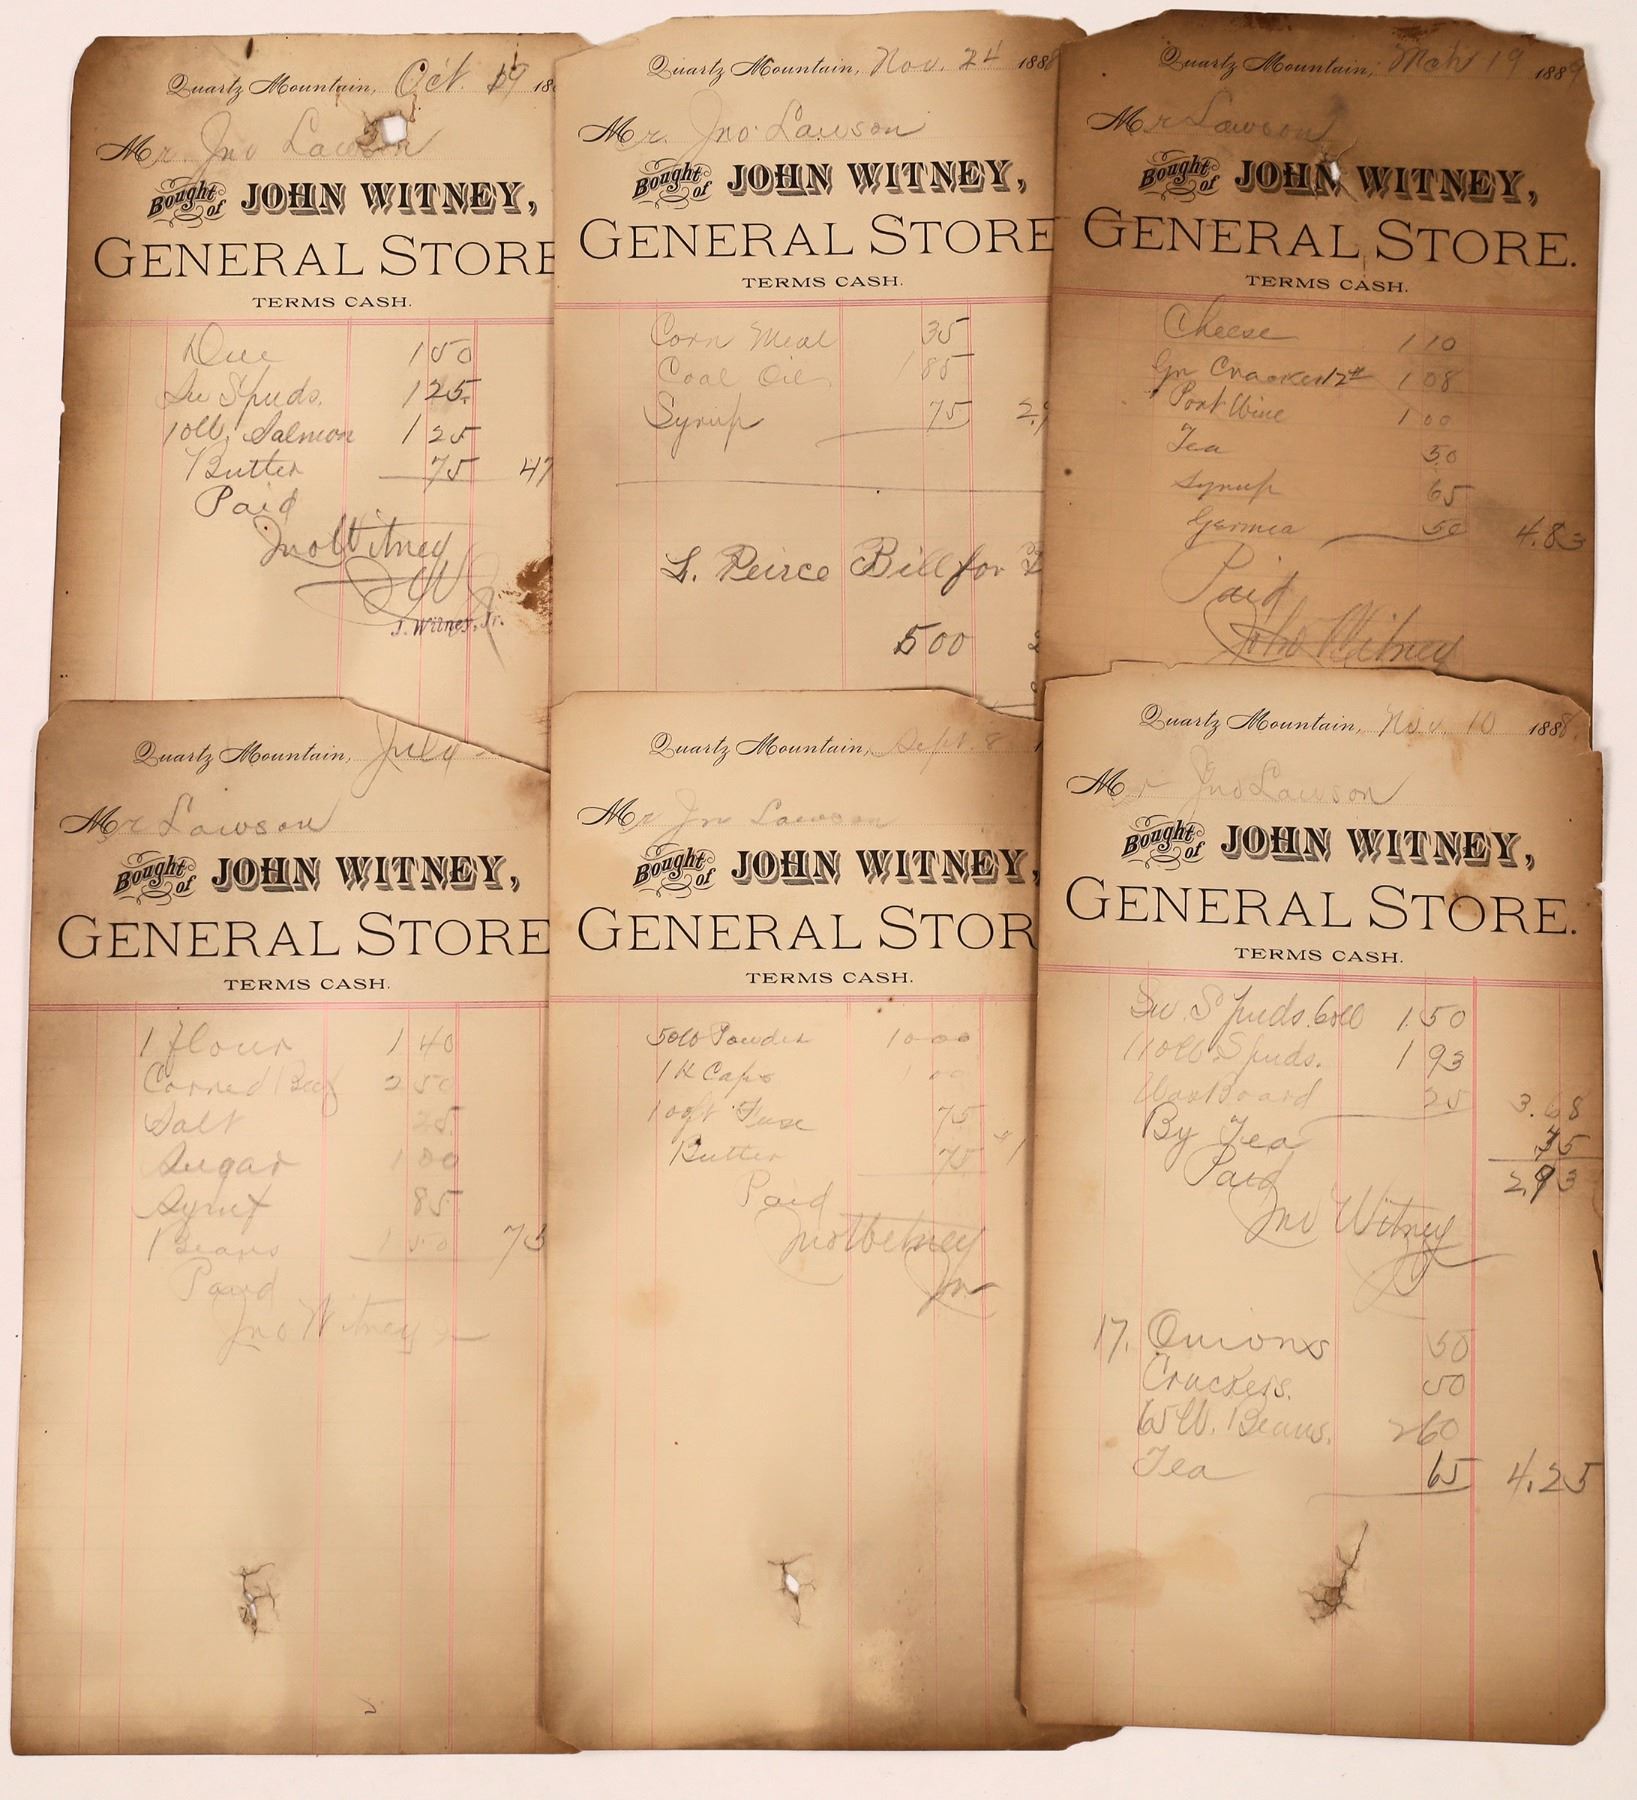 Quartz Mountain, Oct. 19 188
Mr. Jno Lawson
Bought of JOHN WITNEY,
GENERAL STORE
TERMS CASH.
Due 150
Sw Spuds. 125
10lb. Salmon 125
Butter 75 47
Paid
Jno Witney
JW
J. Witney, Jr.
Quartz Mountain, Nov. 24 1888
Mr. Jno. Lawson
Bought of JOHN WITNEY,
GENERAL STORE
TERMS CASH.
Corn Meal 35
Coal Oil 185
Syrup 75 2.9
L. Peirce Bill for
500
Quartz Mountain, Mch 19 1889
Mr Lawson
Bought of JOHN WITNEY,
GENERAL STORE.
TERMS CASH.
Cheese 110
Gn Cracker 12# 108
Port Wine 100
Tea 50
Syrup 65
Germea 50 4.83
Paid
John Witney
Quartz Mountain, July
Mr Lawson
Bought of JOHN WITNEY,
GENERAL STORE
TERMS CASH.
1 flour 140
Corned Beef 250
Salt 25
Sugar 100
Syrup 85
Beans 150 75
Paid
Jno Witney Jr
Quartz Mountain, Sept. 8 1
Mr Jno Lawson
Bought of JOHN WITNEY,
GENERAL STOR
TERMS CASH.
50lb Powder 1000
1 H Caps 100
100ft Fuse 75
Butter 75
Paid
Jno Witney
Jr
Quartz Mountain, Nov. 10 1888.
Mr Jno Lawson
Bought of JOHN WITNEY,
GENERAL STORE.
TERMS CASH.
Sw. Spuds. 60lb 1.50
110lb. Spuds. 193
Wash Board 25 3.68
By Tea 75
Paid 2.93
Jno Witney
Jr
17. Onions 50
Crackers. 50
65lb. Beans. 260
Tea 65 4.25